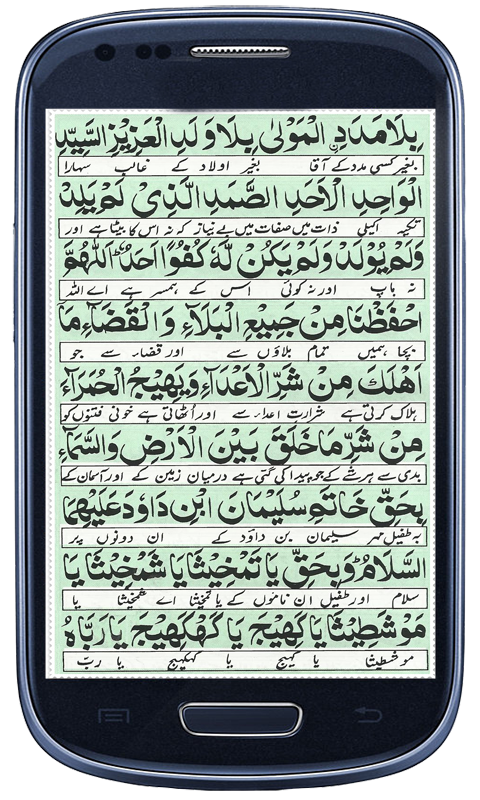 بِلَا مَدَدِ الْمَوْلٰى بِلَا وَلَدِ الْعَزِيْزِ السَّيِّدِ
بغیر کسی مدد کے آقا بغیر اولاد کے غالب سہارا
الْوَاحِدِ الْاَحَدِ الصَّمَدِ الَّذِىْ لَمْ يَلِدْ
تکیہ اکیلی ذات میں صفات میں بے نیاز کہ نہ اس کا بیٹا ہے اور
وَلَمْ يُوْلَدْ وَلَمْ يَكُنْ لَّهٗ كُفُوًا اَحَدٌ اَللّٰهُمَّ
نہ باپ اور نہ کوئی اس کے ہمسر ہے اے اللہ
احْفَظْنَا مِنْ جَمِيْعِ الْبَلَآءِ وَ الْقَضَآءِ مَا
بچا ہمیں تمام بلاؤں سے اور قضاء سے جو
اَهْلَكَ مِنْ شَرِّ الْاَعْدَآءِ وَيَهِيْجُ الْحُمَرَآءِ
ہلاک کرتی ہے شرارت اعداء سے اور اُٹھاتی ہے خونی فتنوں کو
مِنْ شَرِّ مَا خَلَقَ بَيْنَ الْاَرْضِ وَالسَّمَآءِ
بدی سے ہر شے کے جو پیدا کی گئی ہے درمیان زمین کے اور آسمان کے
بِحَقِّ خَاتَمِ سُلَيْمَانَ ابْنِ دَاوٗدَ عَلَيْهِمَا
بہ طفیل مہر سلیمان بن داؤد کے ان دونوں پر
السَّلَامُ وَبِحَقِّ يَا تَمْخِيْثَا يَا شَمْخِيْثَا يَا
سلام اور طفیل ان ناموں کے یا تمخیثا اے شمخیثا یا
مَوْشَطِيْثَا يَا كَهِيْجُ يَا كَهْكَهِيْجُ يَا رَبَّاهُ
موشطیثا یا کہیج یا کہکہیج یا ربّ